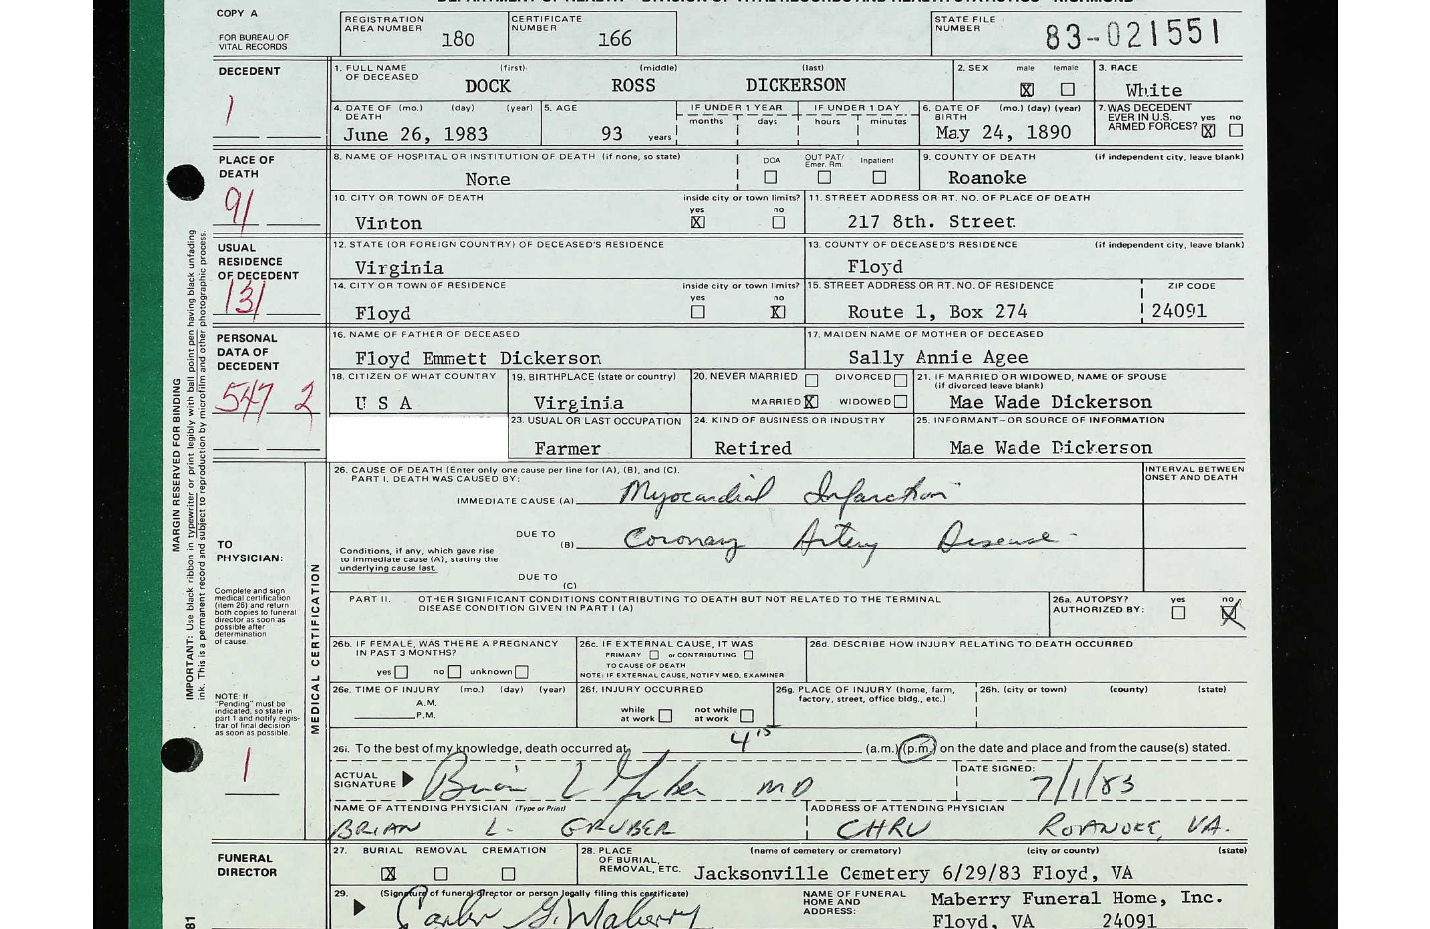 COPY A
FOR BUREAU OF
VITAL RECORDS
REGISTRATION
AREA NUMBER 180
CERTIFICATE
NUMBER 166
STATE FILE
NUMBER 83-021551
DECEDENT
1
1. FULL NAME (first) (middle) (last)
OF DECEASED
DOCK ROSS DICKERSON
2. SEX male female
X
3. RACE
White
4. DATE OF (mo.) (day) (year)
DEATH
June 26, 1983
5. AGE
93 years
IF UNDER 1 YEAR
months days
IF UNDER 1 DAY
hours minutes
6. DATE OF (mo.) (day) (year)
BIRTH
May 24, 1890
7. WAS DECEDENT
EVER IN U.S. yes no
ARMED FORCES? X
PLACE OF
DEATH
91
8. NAME OF HOSPITAL OR INSTITUTION OF DEATH (if none, so state)
None
DOA OUT PAT/ Emer. Rm. Inpatient
9. COUNTY OF DEATH (if independent city, leave blank)
Roanoke
10. CITY OR TOWN OF DEATH inside city or town limits?
yes no
Vinton X
11. STREET ADDRESS OR RT. NO. OF PLACE OF DEATH
217 8th. Street
USUAL
RESIDENCE
OF DECEDENT
131
12. STATE (OR FOREIGN COUNTRY) OF DECEASED'S RESIDENCE
Virginia
13. COUNTY OF DECEASED'S RESIDENCE (if independent city, leave blank)
Floyd
14. CITY OR TOWN OF RESIDENCE inside city or town limits?
yes no
Floyd X
15. STREET ADDRESS OR RT. NO. OF RESIDENCE ZIP CODE
Route 1, Box 274 24091
PERSONAL
DATA OF
DECEDENT
547 2
16. NAME OF FATHER OF DECEASED
Floyd Emmett Dickerson
17. MAIDEN NAME OF MOTHER OF DECEASED
Sally Annie Agee
18. CITIZEN OF WHAT COUNTRY
U S A
19. BIRTHPLACE (state or country)
Virginia
20. NEVER MARRIED DIVORCED
MARRIED X WIDOWED
21. IF MARRIED OR WIDOWED, NAME OF SPOUSE
(if divorced leave blank)
Mae Wade Dickerson
23. USUAL OR LAST OCCUPATION
Farmer
24. KIND OF BUSINESS OR INDUSTRY
Retired
25. INFORMANT-OR SOURCE OF INFORMATION
Mae Wade Dickerson
MARGIN RESERVED FOR BINDING
IMPORTANT: Use black ribbon in typewriter or print legibly with ball point pen having black unfading
ink. This is a permanent record and subject to reproduction by microfilm and other photographic process.
MEDICAL CERTIFICATION
TO
PHYSICIAN:
Complete and sign
medical certification
(item 26) and return
both copies to funeral
director as soon as
possible after
determination
of cause.
NOTE: If
"Pending" must be
indicated, so state in
part 1 and notify regis-
trar of final decision
as soon as possible.
1
26. CAUSE OF DEATH (Enter only one cause per line for (A), (B), and (C).
PART I. DEATH WAS CAUSED BY:
INTERVAL BETWEEN
ONSET AND DEATH
IMMEDIATE CAUSE (A) Myocardial Infarction
DUE TO
(B) Coronary Artery Disease
Conditions, if any, which gave rise
to immediate cause (A), stating the
underlying cause last.
DUE TO
(C)
PART II. OTHER SIGNIFICANT CONDITIONS CONTRIBUTING TO DEATH BUT NOT RELATED TO THE TERMINAL
DISEASE CONDITION GIVEN IN PART I (A)
26a. AUTOPSY? yes no
AUTHORIZED BY: X
26b. IF FEMALE, WAS THERE A PREGNANCY
IN PAST 3 MONTHS?
yes no unknown
26c. IF EXTERNAL CAUSE, IT WAS
PRIMARY or CONTRIBUTING
TO CAUSE OF DEATH
NOTE: IF EXTERNAL CAUSE, NOTIFY MED. EXAMINER
26d. DESCRIBE HOW INJURY RELATING TO DEATH OCCURRED
26e. TIME OF INJURY (mo.) (day) (year)
A.M.
P.M.
26f. INJURY OCCURRED
while not while
at work at work
26g. PLACE OF INJURY (home, farm,
factory, street, office bldg., etc.)
26h. (city or town) (county) (state)
26i. To the best of my knowledge, death occurred at 4 15 (a.m.) (p.m.) on the date and place and from the cause(s) stated.
ACTUAL
SIGNATURE Brian L Gruber MD
DATE SIGNED:
7/1/83
NAME OF ATTENDING PHYSICIAN (Type or Print)
BRIAN L. GRUBER
ADDRESS OF ATTENDING PHYSICIAN
CHRV ROANOKE, VA.
FUNERAL
DIRECTOR
27. BURIAL REMOVAL CREMATION
X
28. PLACE (name of cemetery or crematory) (city or county) (state)
OF BURIAL,
REMOVAL, ETC. Jacksonville Cemetery 6/29/83 Floyd, VA
29. (Signature of funeral director or person legally filing this certificate)
Carder G. Maberry
NAME OF FUNERAL
HOME AND
ADDRESS:
Maberry Funeral Home, Inc.
Floyd, VA 24091